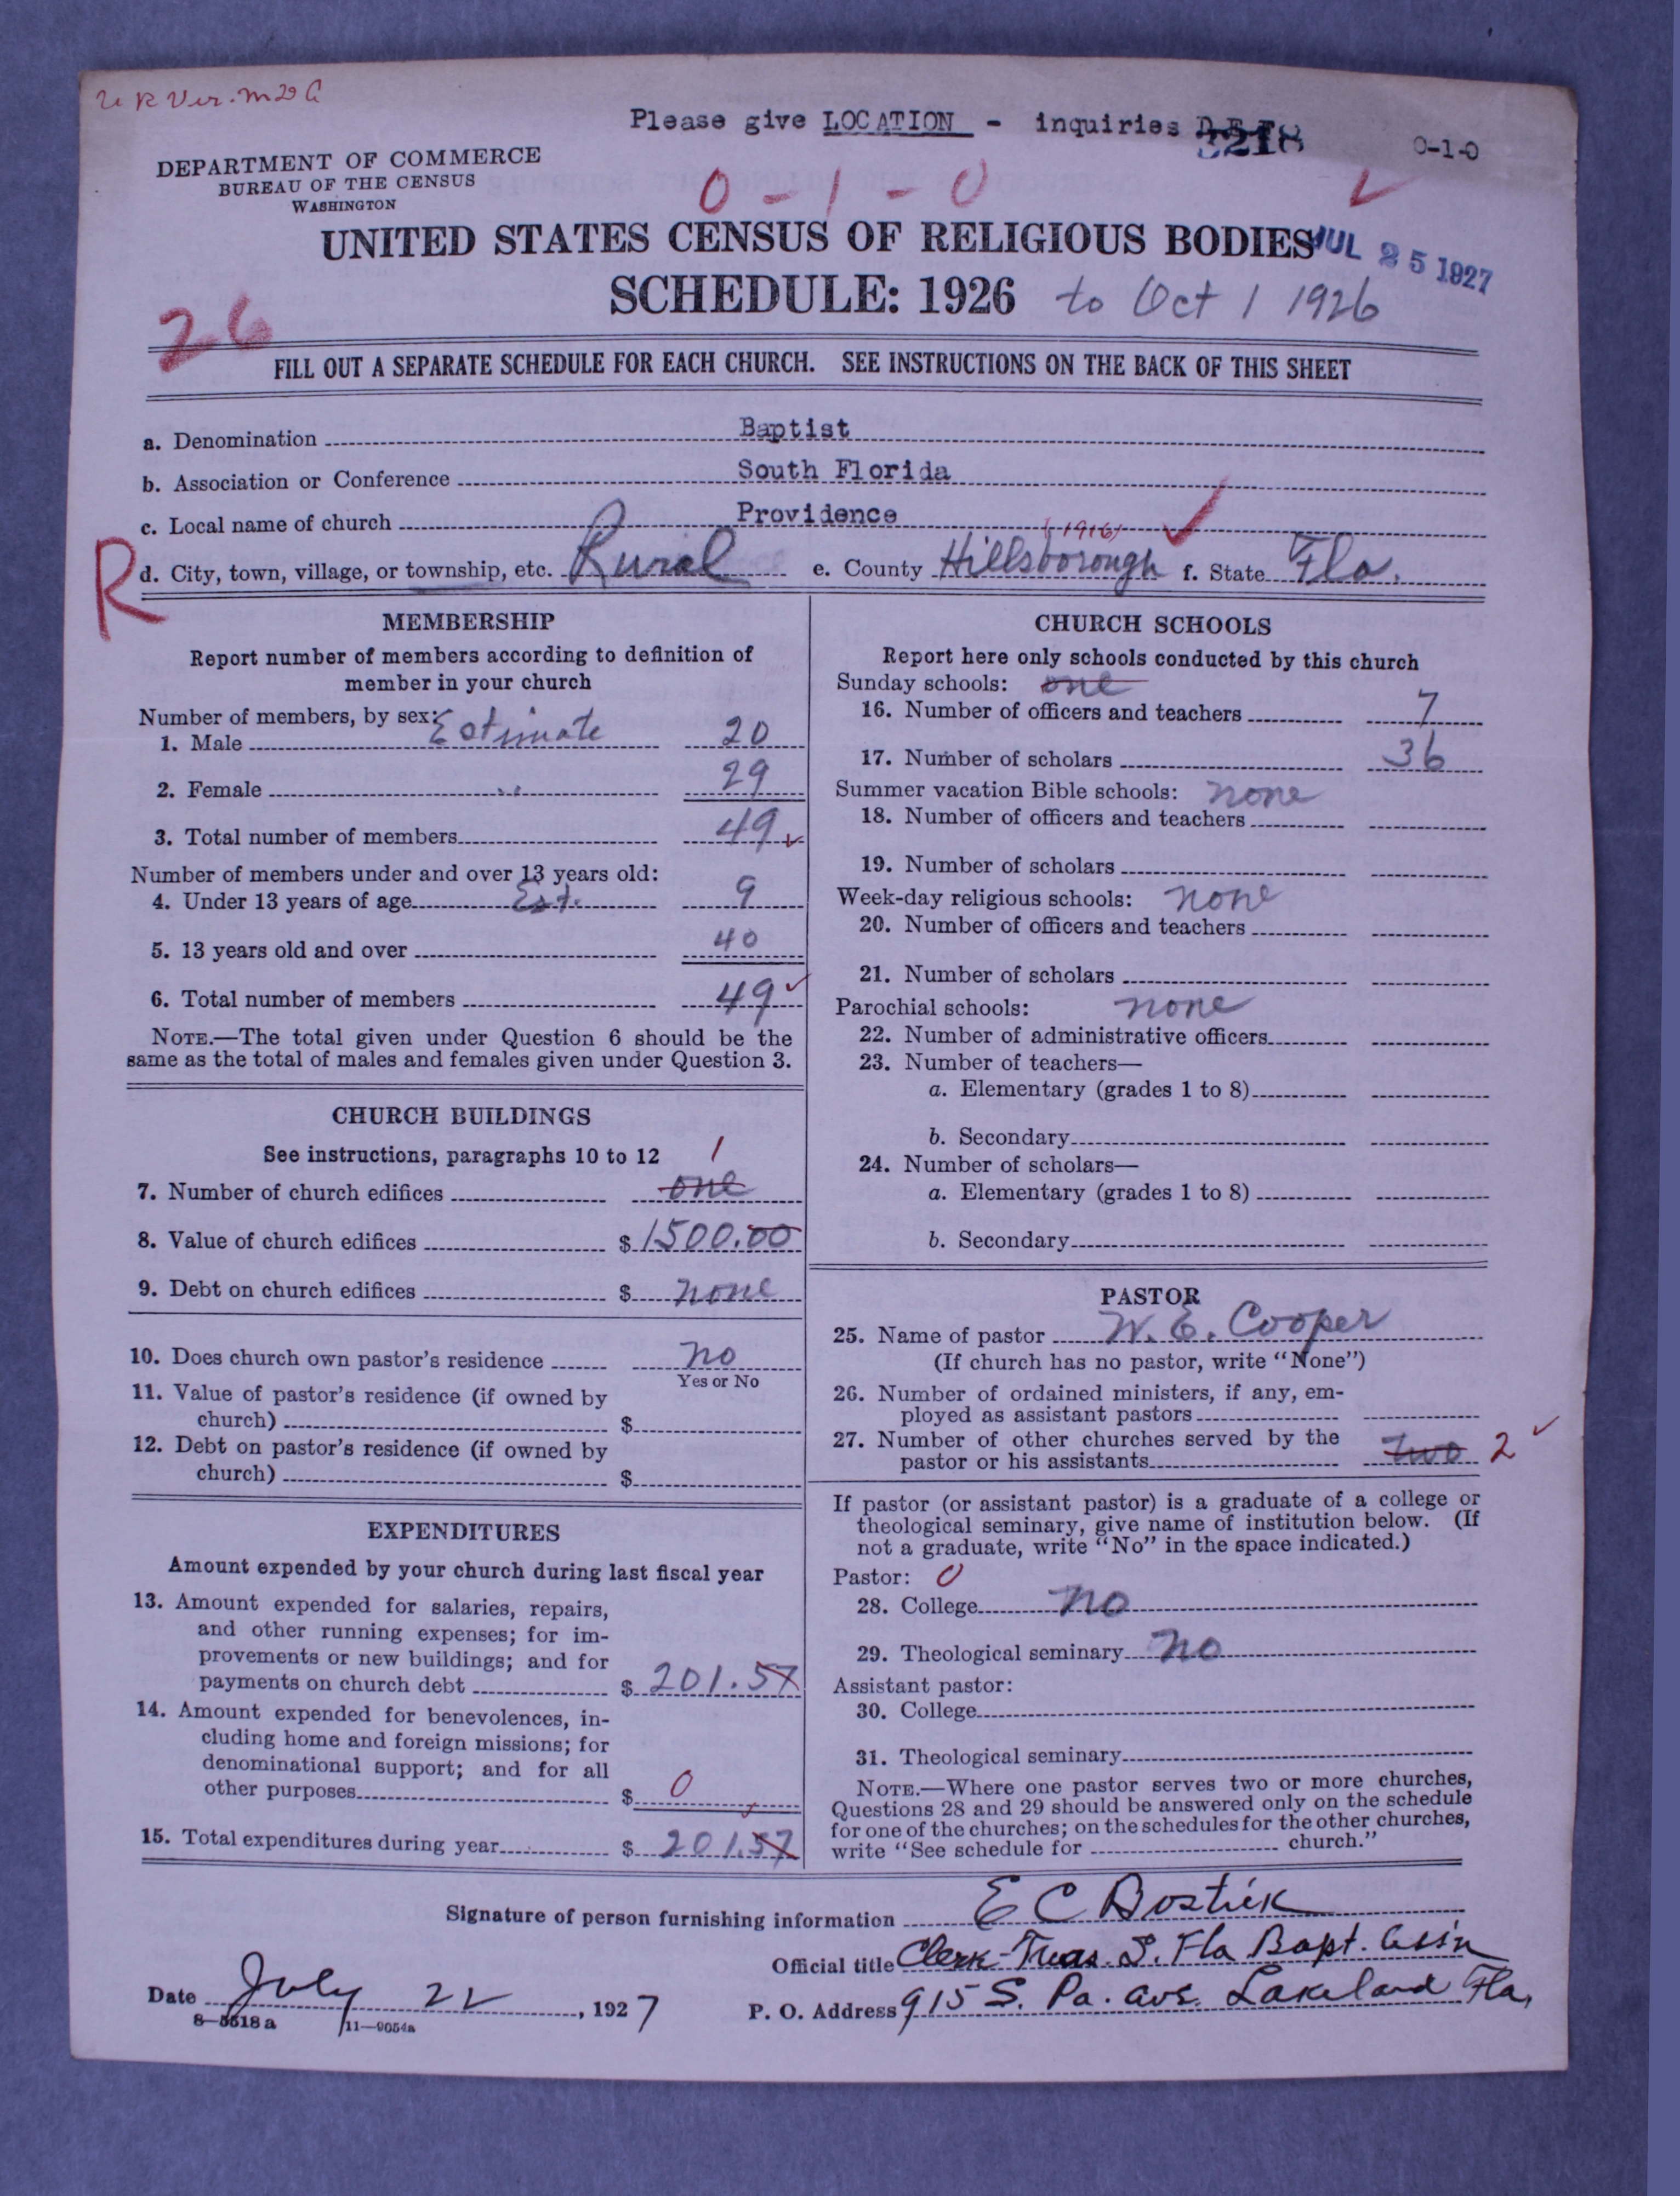 Please give LOCATION - inquiries
3218
0-1-0
DEPARTMENT OF COMMERCE
BUREAU OF THE CENSUS
WASHINGTON
0 - 1 - 0
UNITED STATES CENSUS OF RELIGIOUS BODIES
JUL 25 1927
SCHEDULE: 1926 to Oct 1 1926
26
FILL OUT A SEPARATE SCHEDULE FOR EACH CHURCH. SEE INSTRUCTIONS ON THE BACK OF THIS SHEET
a. Denomination Baptist
b. Association or Conference South Florida
c. Local name of church Providence
(1916)
R
d. City, town, village, or township, etc. Rural e. County Hillsborough f. State Fla.
MEMBERSHIP
Report number of members according to definition of
member in your church
Number of members, by sex: Estimate
1. Male 20
2. Female " 29
3. Total number of members 49
Number of members under and over 13 years old:
4. Under 13 years of age Est. 9
5. 13 years old and over 40
6. Total number of members 49
NOTE.—The total given under Question 6 should be the
same as the total of males and females given under Question 3.
CHURCH BUILDINGS
See instructions, paragraphs 10 to 12
1
7. Number of church edifices one
8. Value of church edifices $ 1500.00
9. Debt on church edifices $ none
10. Does church own pastor's residence no
Yes or No
11. Value of pastor's residence (if owned by
church) $
12. Debt on pastor's residence (if owned by
church) $
EXPENDITURES
Amount expended by your church during last fiscal year
13. Amount expended for salaries, repairs,
and other running expenses; for im-
provements or new buildings; and for
payments on church debt $ 201.57
14. Amount expended for benevolences, in-
cluding home and foreign missions; for
denominational support; and for all
other purposes $ 0
15. Total expenditures during year $ 201.57
CHURCH SCHOOLS
Report here only schools conducted by this church
Sunday schools: one
16. Number of officers and teachers 7
17. Number of scholars 36
Summer vacation Bible schools: none
18. Number of officers and teachers
19. Number of scholars
Week-day religious schools: none
20. Number of officers and teachers
21. Number of scholars
Parochial schools: none
22. Number of administrative officers
23. Number of teachers—
a. Elementary (grades 1 to 8)
b. Secondary
24. Number of scholars—
a. Elementary (grades 1 to 8)
b. Secondary
PASTOR
25. Name of pastor W. E. Cooper
(If church has no pastor, write "None")
26. Number of ordained ministers, if any, em-
ployed as assistant pastors
27. Number of other churches served by the
pastor or his assistants two 2
If pastor (or assistant pastor) is a graduate of a college or
theological seminary, give name of institution below. (If
not a graduate, write "No" in the space indicated.)
Pastor: 0
28. College no
29. Theological seminary no
Assistant pastor:
30. College
31. Theological seminary
NOTE.—Where one pastor serves two or more churches,
Questions 28 and 29 should be answered only on the schedule
for one of the churches; on the schedules for the other churches,
write "See schedule for church."
Signature of person furnishing information E C Bostick
Official title Clerk-Treas. S. Fla Bapt. Assn
Date July 22, 1927
P. O. Address 915 S. Pa. ave. Lakeland Fla,
8—5518 a 11—9054a